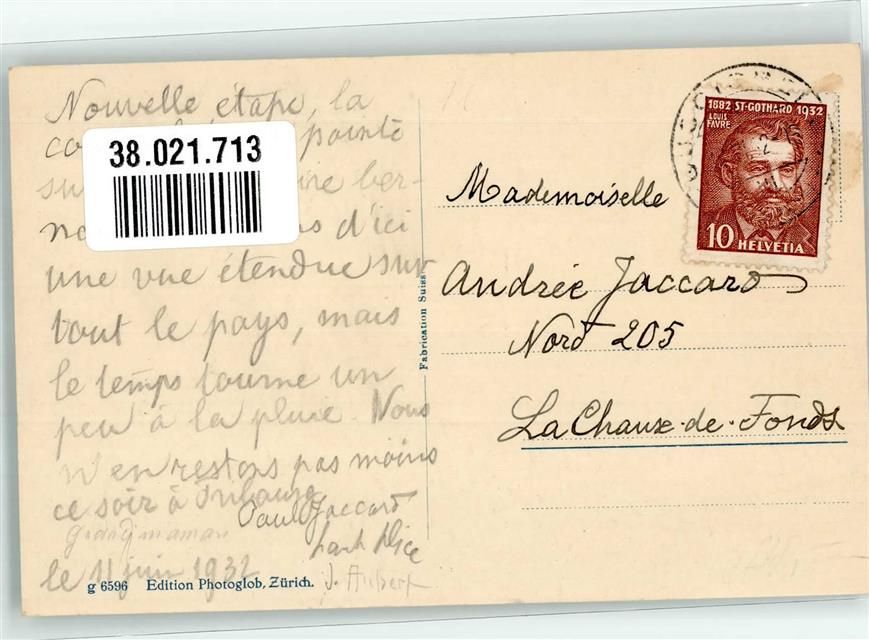 Nouvelle étape, la
pointe
ber-
d'ici
une vue étendue sur
tout le pays, mais
le temps tourne un
peu à la pluie. Nous
n'en restons pas moins
ce soir à
Paul Jaccard
grand maman
tante Alice
le 11 juin 1932
J. Aubert
38.021.713
g 6596 Edition Photoglob, Zürich.
Fabrication Suisse
1882 ST-GOTHARD 1932
LOUIS
FAVRE
10 HELVETIA
Mademoiselle
Andrée Jaccard
Nord 205
La Chaux-de-Fonds